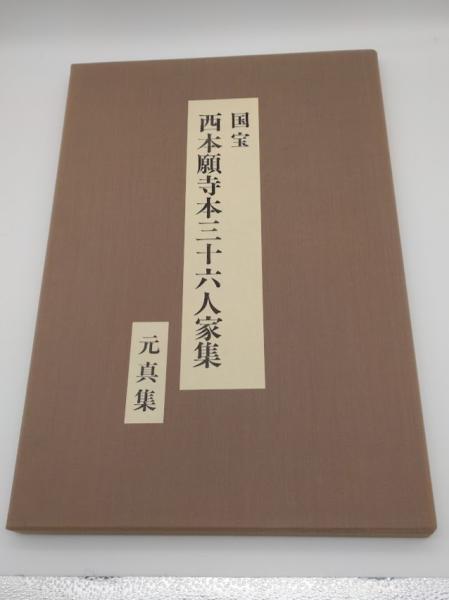 国宝
西本願寺本三十六人家集
元真集